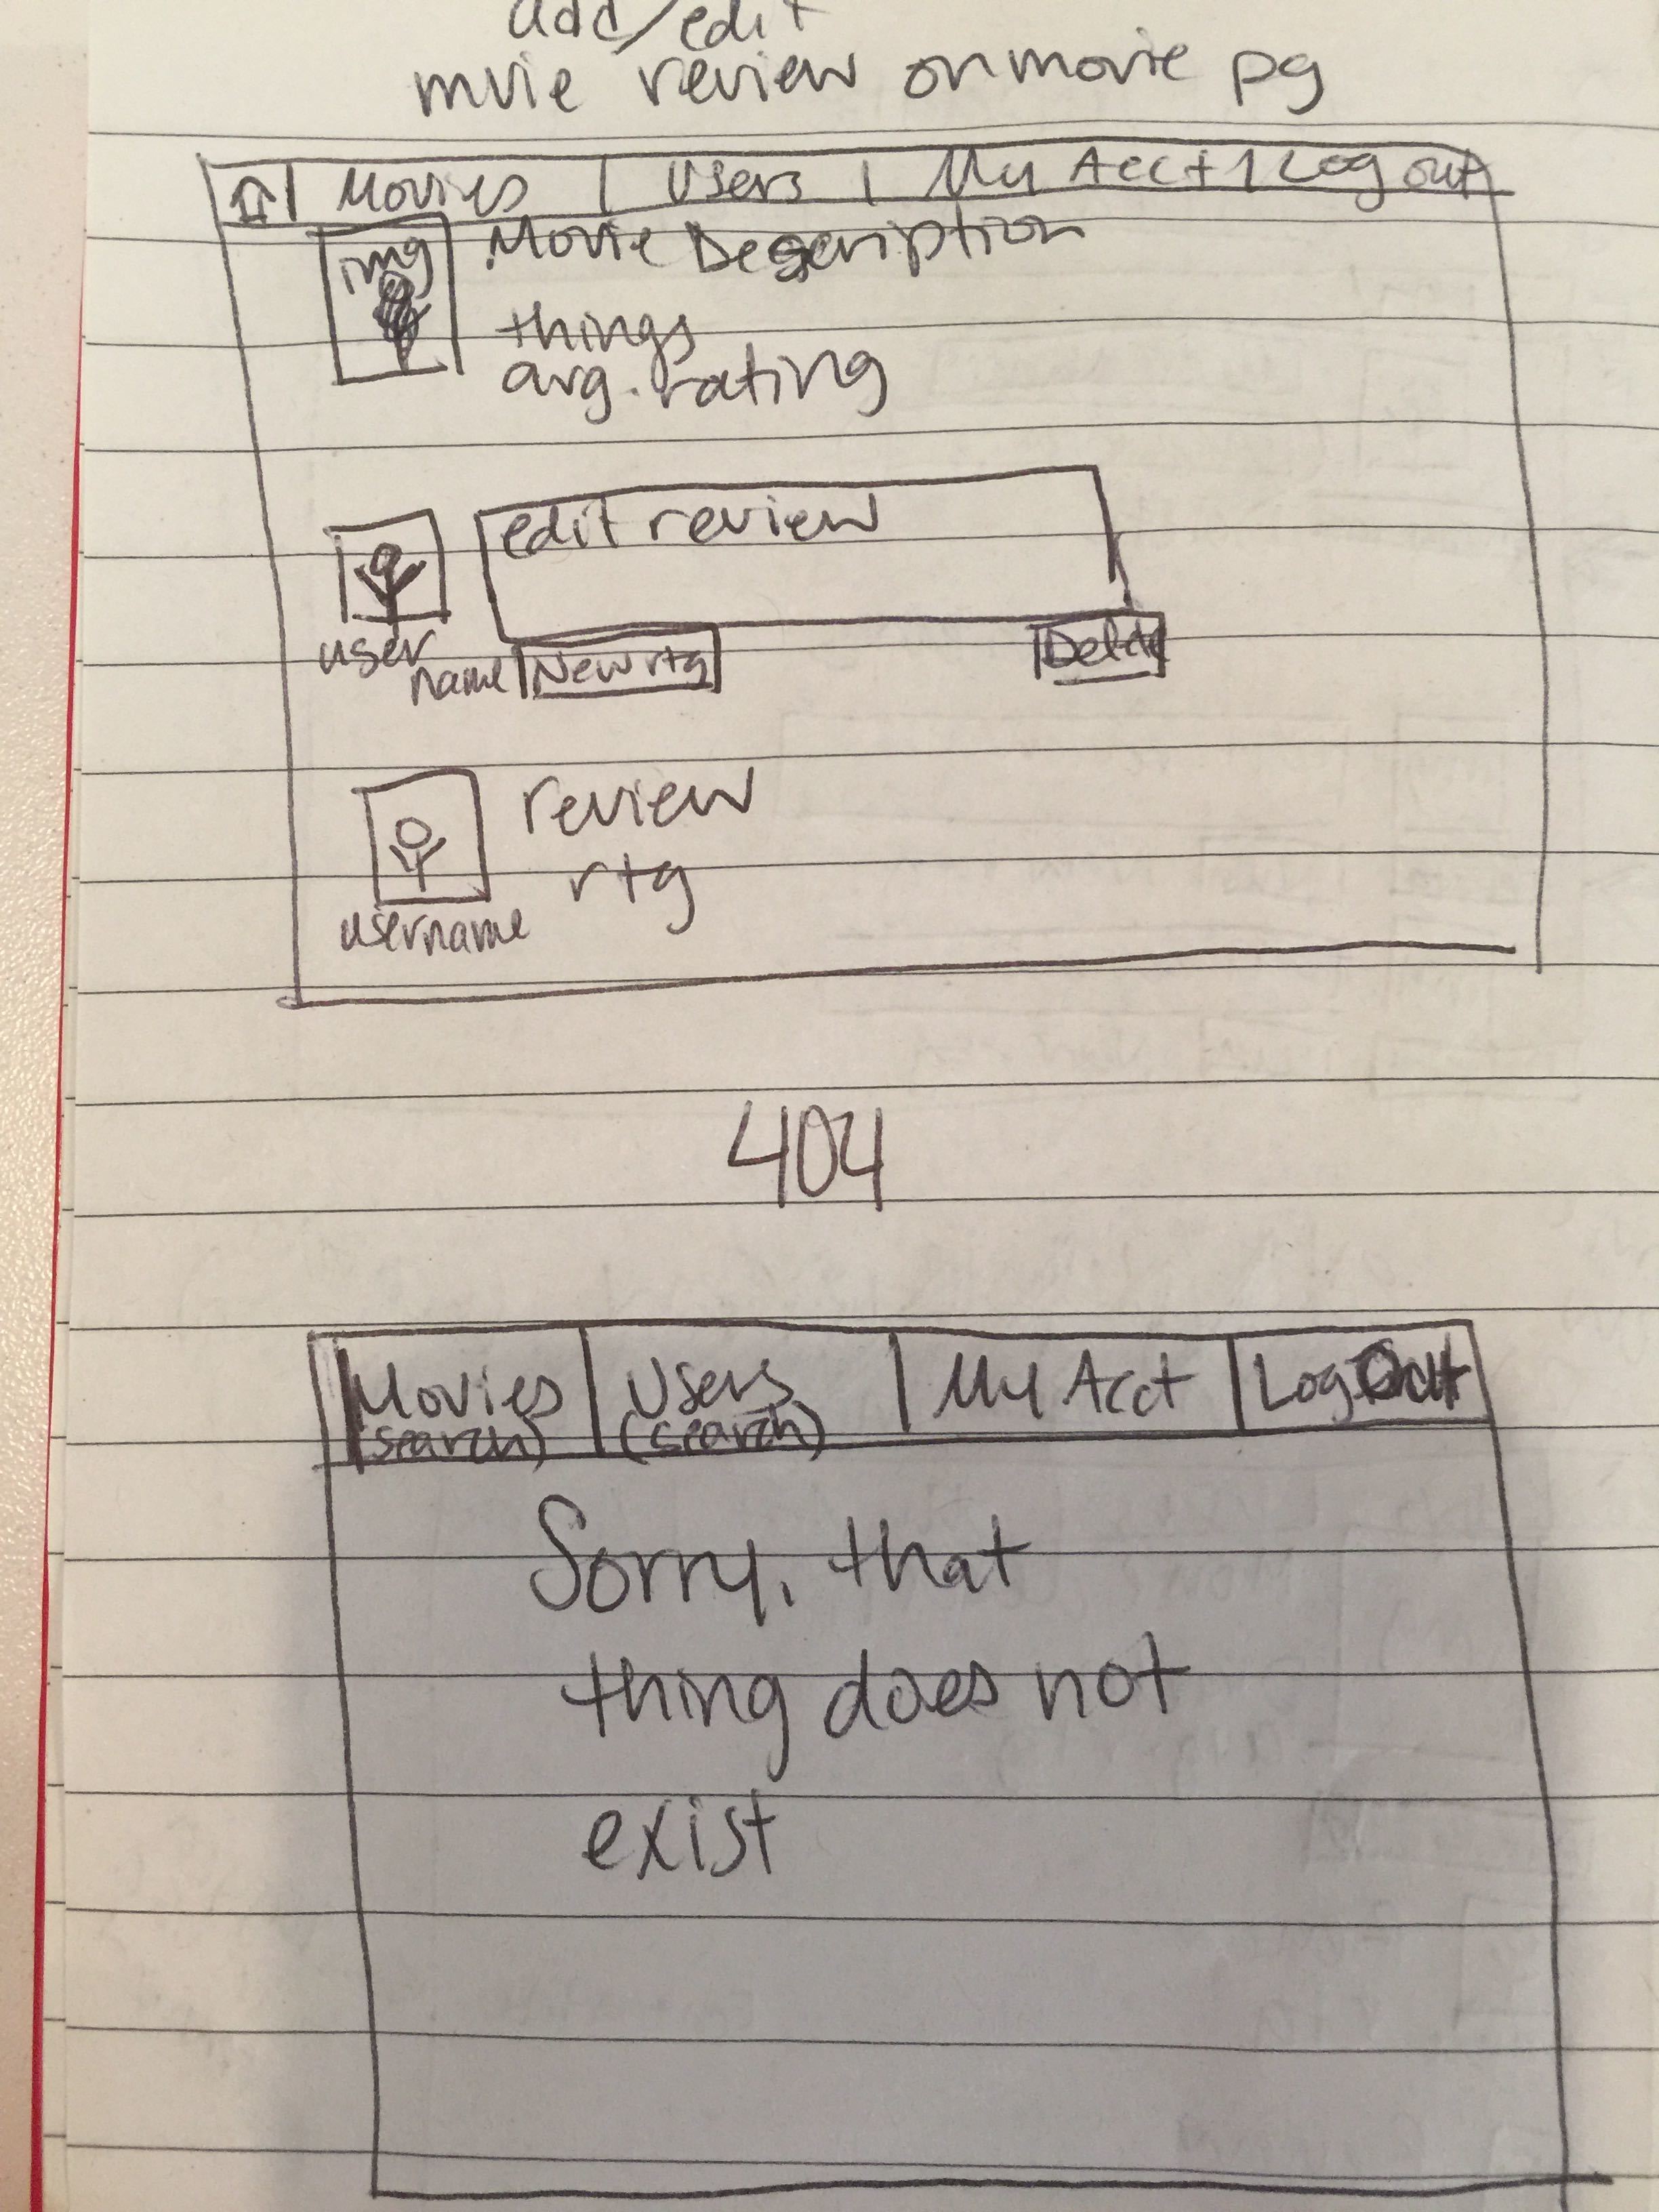 add/edit
mvie review on movie pg
Movies | Users | My Acct | Log out
img
Movie Description
things
avg. rating
edit review
user
name
New rtg
Delete
review
rtg
username
404
Movies
(search)
Users
(search)
My Acct
Log Out
Sorry, that
thing does not
exist